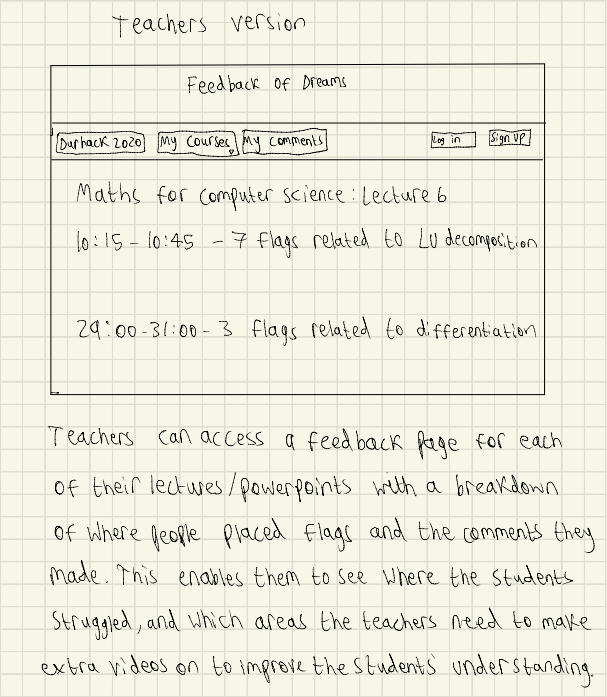 Teachers version
Feedback of Dreams
Durhack 2020 My Courses My comments Log in Sign UP
Maths for computer science: Lecture 6
10:15 - 10:45 - 7 flags related to LU decomposition
29:00 - 31:00 - 3 flags related to differentiation
Teachers can access a feedback page for each
of their lectures/powerpoints with a breakdown
of where people placed flags and the comments they
made. This enables them to see where the students
struggled, and which areas the teachers need to make
extra videos on to improve the students' understanding.